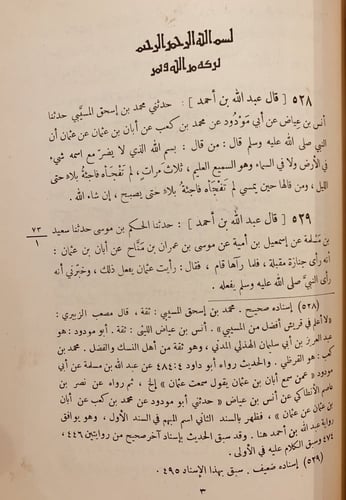 بسم الله الرحمن الرحيم
بركة من الله ونصر
٥٢٨ [ قال عبد الله بن أحمد ] : حدثني محمد بن إسحق المسيَّبي حدثنا
أنس بن عياض عن أبي مَوْدُود عن محمد بن كعب عن أبان بن عثمان عن عثمان أن
النبي صلى الله عليه وسلم قال : من قال : بسم الله الذي لا يضرّ مع اسمه شيء
في الأرض ولا في السماء وهو السميع العليم ، ثلاث مرات ، لم تَفْجَأه فاجئةُ بلاء حتى
الليل ، ومن قالها حين يمسي لم تفجأه فاجئةُ بلاء حتى يصبح ، إن شاء الله .
٥٢٩ [ قال عبد الله بن أحمد ] : حدثنا الحكم بن موسى حدثنا سعيد
٧٣
١
بن مَسْلمة عن إسمعيل بن أمية عن موسى بن عمران بن مَنَّاح عن أبان بن عثمان :
أنه رأى جنازة مقبلة ، فلما رآها قام ، فقال : رأيت عثمان يفعل ذلك ، وخبّرني أنه
رأى النبيَّ صلى الله عليه وسلم يفعله .
(٥٢٨) إسناده صحيح . محمد بن إسحق المسيبي : ثقة ، قال مصعب الزبيري :
«لا أعلم في قريش أفضل من المسيبي» . أنس بن عياض الليثى : ثقة . أبو مودود : هو
عبد العزيز بن أبي سليمان الهذلي المدني ، وهو ثقة من أهل النسك والفضل . محمد بن
كعب : هو القرظي . والحديث رواه أبو داود ٤ : ٤٨٤ عن عبد الله بن مسلمة عن أبي
مودود « عمن سمع أبان بن عثمان يقول سمعت عثمان » إلخ ، ثم رواه عن نصر بن
عاصم الأنطاكي عن أنس بن عياض « حدثني أبو مودود عن محمد بن كعب عن أبان
بن عثمان عن عثمان » ، فظهر بالسند الثاني اسم المبهم في السند الأول ، وهو يوافق
رواية عبد الله بن أحمد هنا . وقد سبق الحديث بإسناد آخر صحيح من روايتين ٤٤٦ ،
٤٧٤ وسبق الكلام عليه في الأولى .
(٥٢٩) إسناده ضعيف . سبق بهذا الإسناد ٤٩٥ .
٣